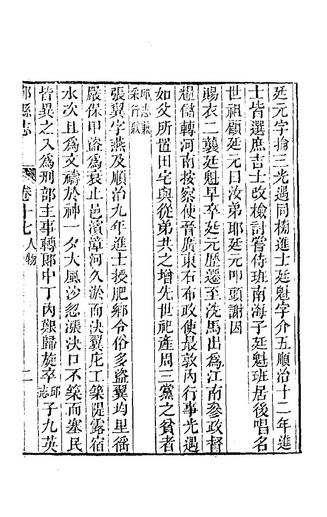 廷元字掄三光遇同榜進士廷魁字介五順治十二年進
士皆選庶吉士改檢討嘗侍班南海子廷魁班居後唱名
世祖顧廷元曰汝弟耶廷元叩頭謝因
賜衣二襲廷魁早卒廷元歷遷至洗馬出為江南參政督
糧儲轉河南按察使晉廣東右布政使最敦內行事光遇
如父所置田宅與從弟共之增先世祀產周三黨之貧者
邱志兼
采行狀
張翼字燕及順治九年進士授肥鄉令俗多盜翼均里徭
嚴保甲盜為衰止邑濱漳河久淤而決翼庀工築隄露宿
水次且為文禱於神一夕大風沙忽漲決口不築而塞民
皆異之入為刑部主事轉郎中丁內艱歸旋卒邱志子九英
縣志
卷十七人物
二